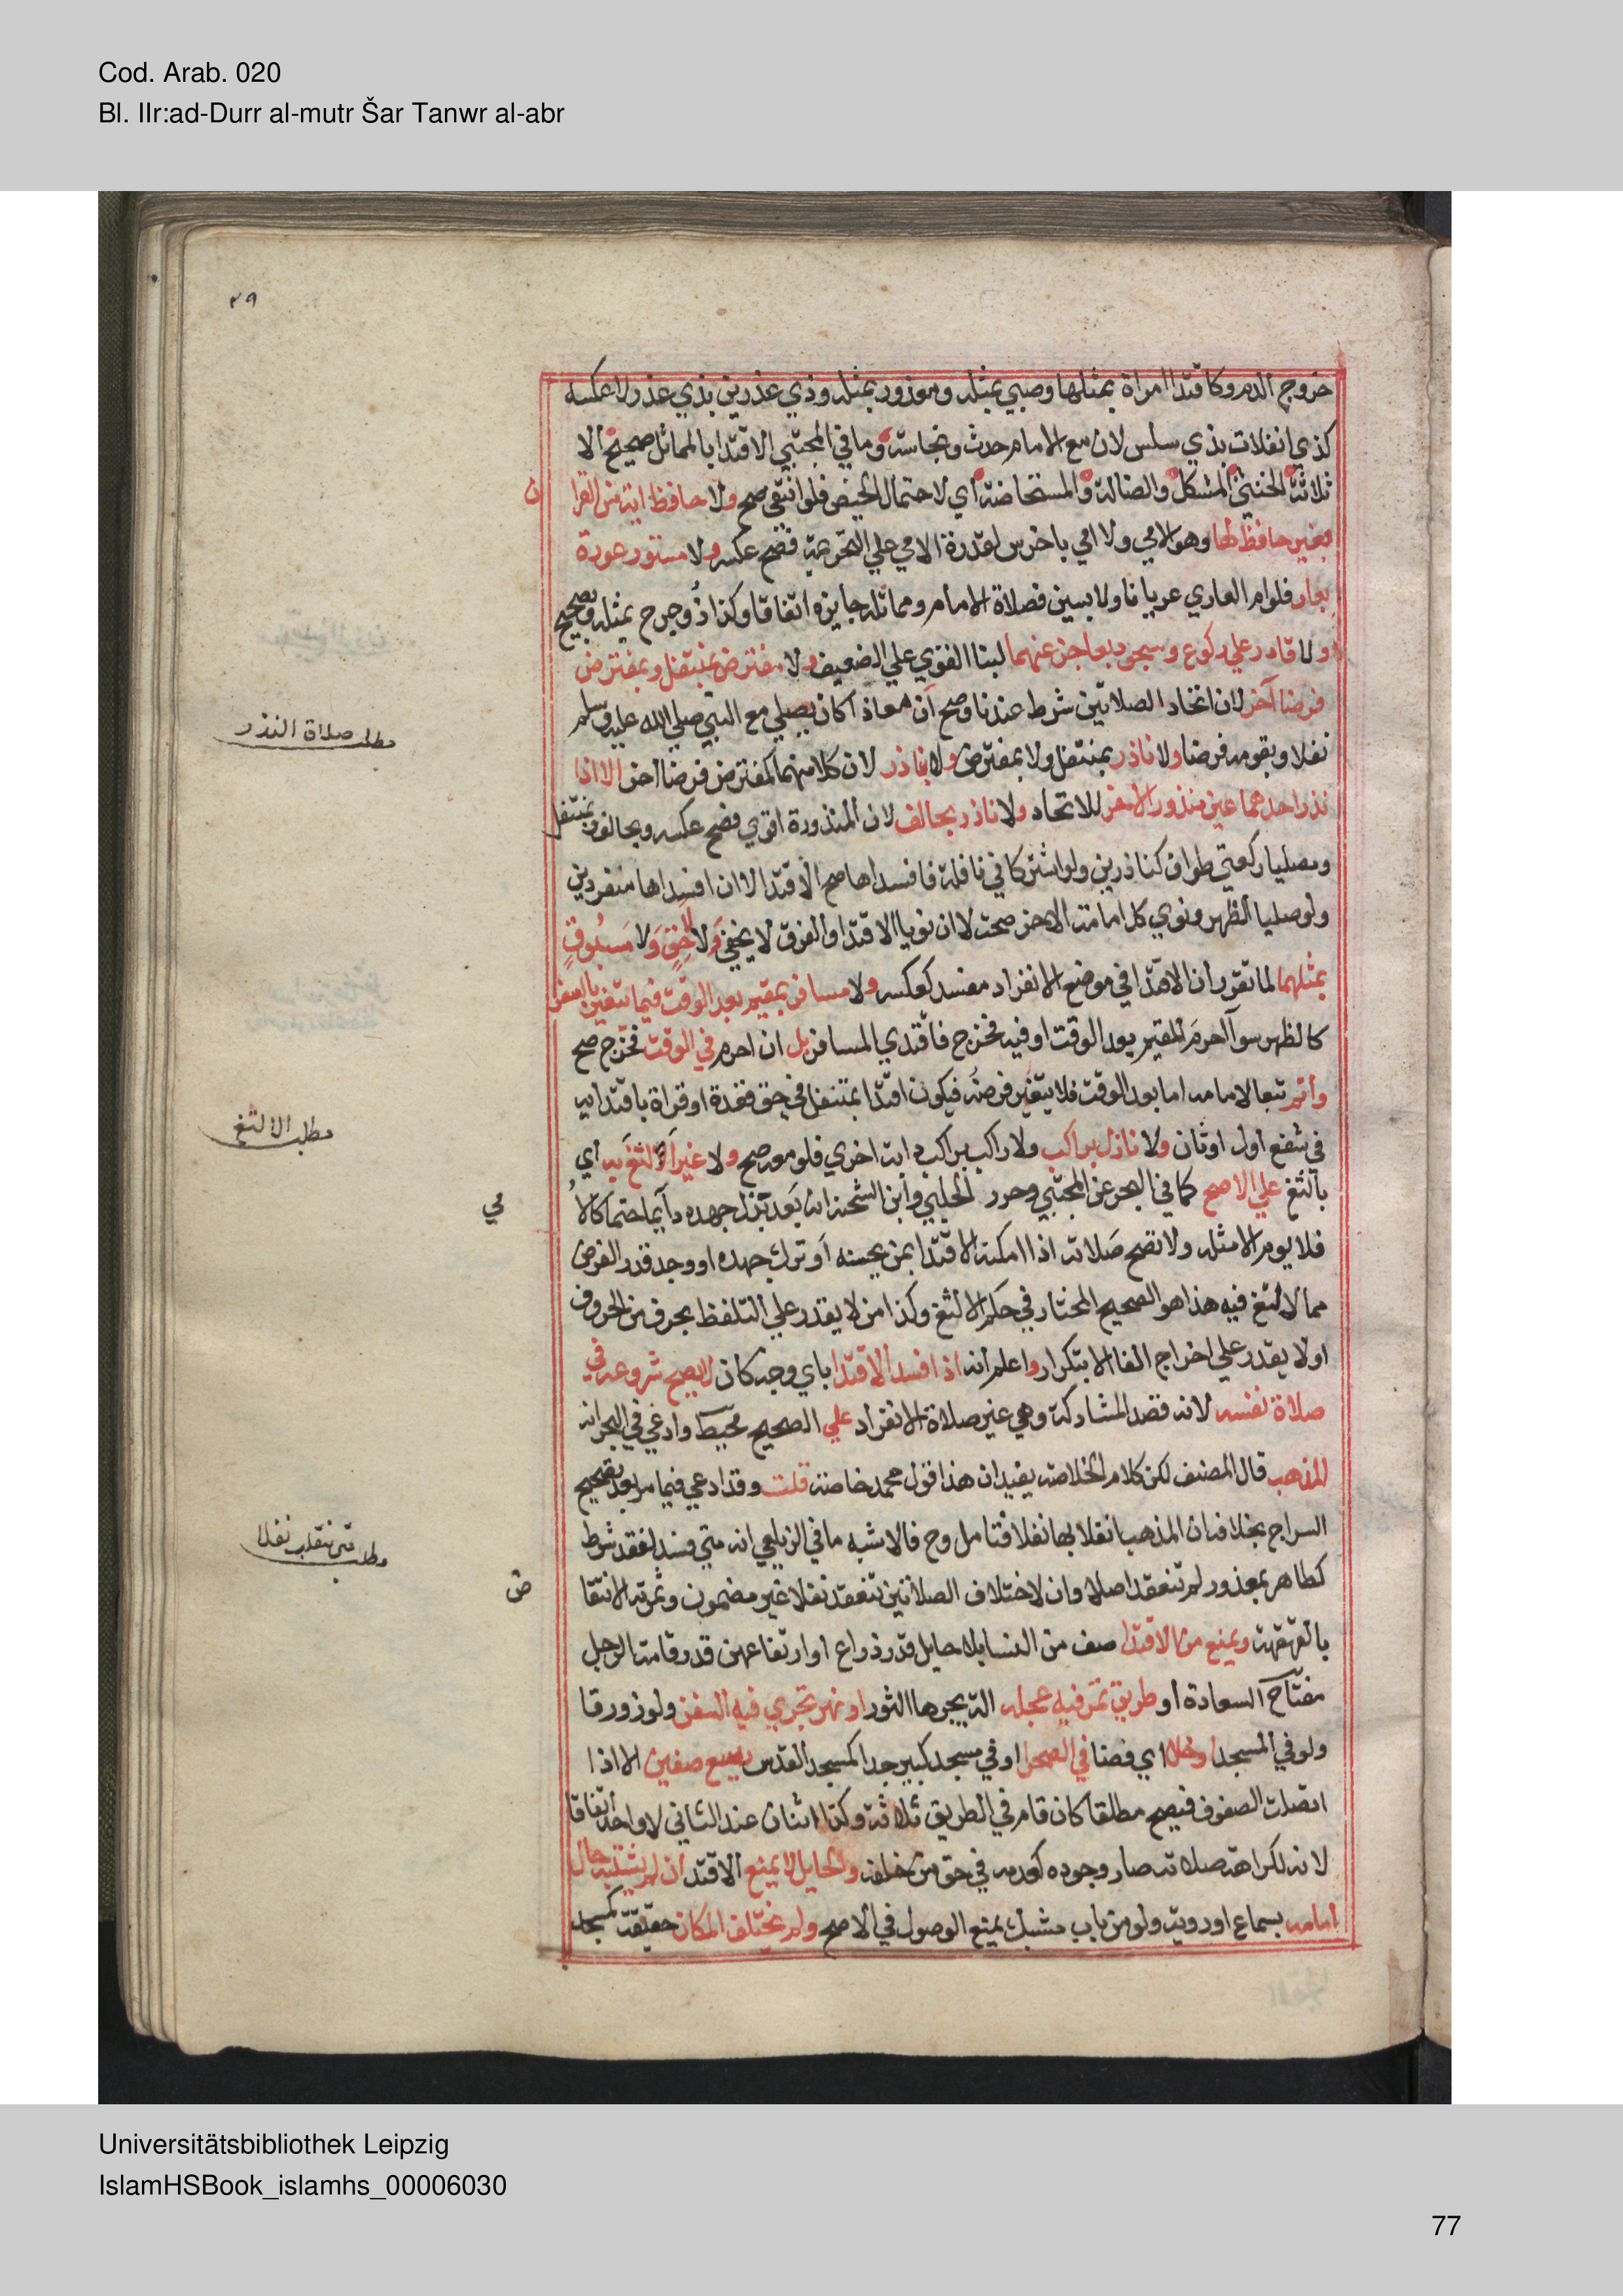 Cod. Arab. 020
Bl. IIr:ad-Durr al-mutr Šar Tanwr al-abr
٣٩
خروج الدم وكاقتدا امراة بمثلها وصبي بمثله ومعذور بمثله وذي عذرين بذي عذر ولا عكسه
كذي انفلات بذي سلس لان مع الامام حدث ونجاسة وما في المجتبي الاقتدا بالمماثل صحيح الا
ثلاثة الخنثي المشكل والضالة والمستحاضة اي لاحتمال الحيض فلو انتفي صح ولا حافظ اية من القرا
ن
بغير حافظ لها وهو الامي ولا امي باخرس لقدرة الامي علي التحريمة فصح عكسه ولا مستور عورة
بعار فلو ام العاري عريانا ولابسين فصلاة الامام ومماثله جايزة اتفاقا وكذا ذو جرح بمثله وبصحيح
ولا قادر علي ركوع وسجود بعاجز عنهما لبنا القوي علي الضعيف ولا مفترض بمتنفل وبمفترض
فرضا آخر لان اتحاد الصلاتين شرط عندنا وصح ان معاذا كان يصلي مع النبي صلي الله عليه وسلم
مطلب صلاة النذر
نفلا وبقومه فرضا ولا ناذر بمتنفل ولا بمفترض ولا بناذر لان كلا منهما كمفترض فرضا اخر الا اذا
نذر احدهما عين منذور الاخر للاتحاد ولا ناذر بحالف لان المنذورة اقوي فصح عكسه وبحالف وبمتنفل
ومصليا ركعتي طواف كناذرين ولو اشتركا في نافلة فافسداها صح الاقتدا لا ان افسداها منفردين
ولو صليا الظهر ونوي كل امامة الاخر صحت لا ان نويا الاقتدا والفرق لا يخفي ولا لاحق ولا مسبوق
بمثلهما لما تقرر ان الاقتدا في موضع الانفراد مفسد كعكسه ولا مسافر بمقيم بعد الوقت فيما يتغير بالسفر
كالظهر سوآ احرم المقيم بعد الوقت او فيه فخرج فاقتدي المسافر بل ان احرم في الوقت فخرج صح
وأتم تبعا لامامه اما بعد الوقت فلا يتغير فرضه فيكون اقتدا بمتنفل في حق قعدة او قراة باقتدايه
في شفع اول او ثان ولا نازل براكب ولا راكب براكب دابة اخري فلو معه صح ولا غير الالثغ به اي
مطلب الالثغ
بالثغ علي الاصح كما في البحر عن المجتبي وحرر الحلبي وابن الشحنة انه بعد بذل جهده دايما حتما كالا
مي
فلا يوم الا مثله ولا تصح صلاته اذا امكنه الاقتدا بمن يحسنه او ترك جهده او وجد قدر الفرض
مما لا لثغ فيه هذا هو الصحيح المختار في حكم الالثغ وكذا من لا يقدر علي التلفظ بحرف من الحروف
اولا يقدر علي اخراج الفا الا بتكرار واعلم انه اذا فسد الاقتدا باي وجه كان لا يصح شروعه في
صلاة نفسه لانه قصد المشاركة وهي غير صلاة الانفراد علي الصحيح محيط وادعي في البحر انه
المذهب قال المصنف لكن كلام الخلاصة يفيد ان هذا قول محمد خاصة قلت وقد ادعي فيما مر بعد تصحيح
السراج بخلافه ان المذهب انقلابها نفلا فتامل وح فالاشبه ما في الزيلعي انه متي فسد لفقد شرط
مطلب متي تنقلب نفلا
كطاهر بمعذور لم تنعقد اصلا وان لاختلاف الصلاتين تنعقد نفلا غير مضمون وثمرته الانتقا
ض
بالقهقهة ويمنع من الاقتدا صف من النسا بلا حايل قدر ذراع او ارتفاعهن قدر قامة الرجل
مفتاح السعادة او طريق تمر فيه عجلة الة يجرها الثور او نهر تجري فيه السفن ولو زورقا
ولو في المسجد او خلا اي فضا في الصحرا او في مسجد كبير جدا كمسجد القدس يسع صفين الا اذا
اتصلت الصفوف فيصح مطلقا كان قام في الطريق ثلاثة وكذا اثنان عند الثاني لا واحد اتفاقا
لانه لكراهة صلاته صار وجوده كعدمه في حق من خلفه والحايل لا يمنع الاقتدا ان لم يشتبه حال
امامه بسماع او روية ولو من باب مشبك يمنع الوصول في الاصح ولم يختلف المكان حقيقة كمسجد
Universitätsbibliothek Leipzig
IslamHSBook_islamhs_00006030
77